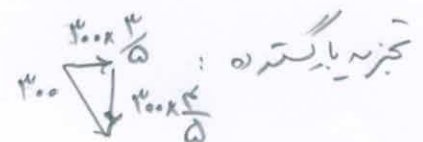 تجزیه بار گسترده :
۳۰۰×۳/۵
۳۰۰
۳۰۰×۴/۵